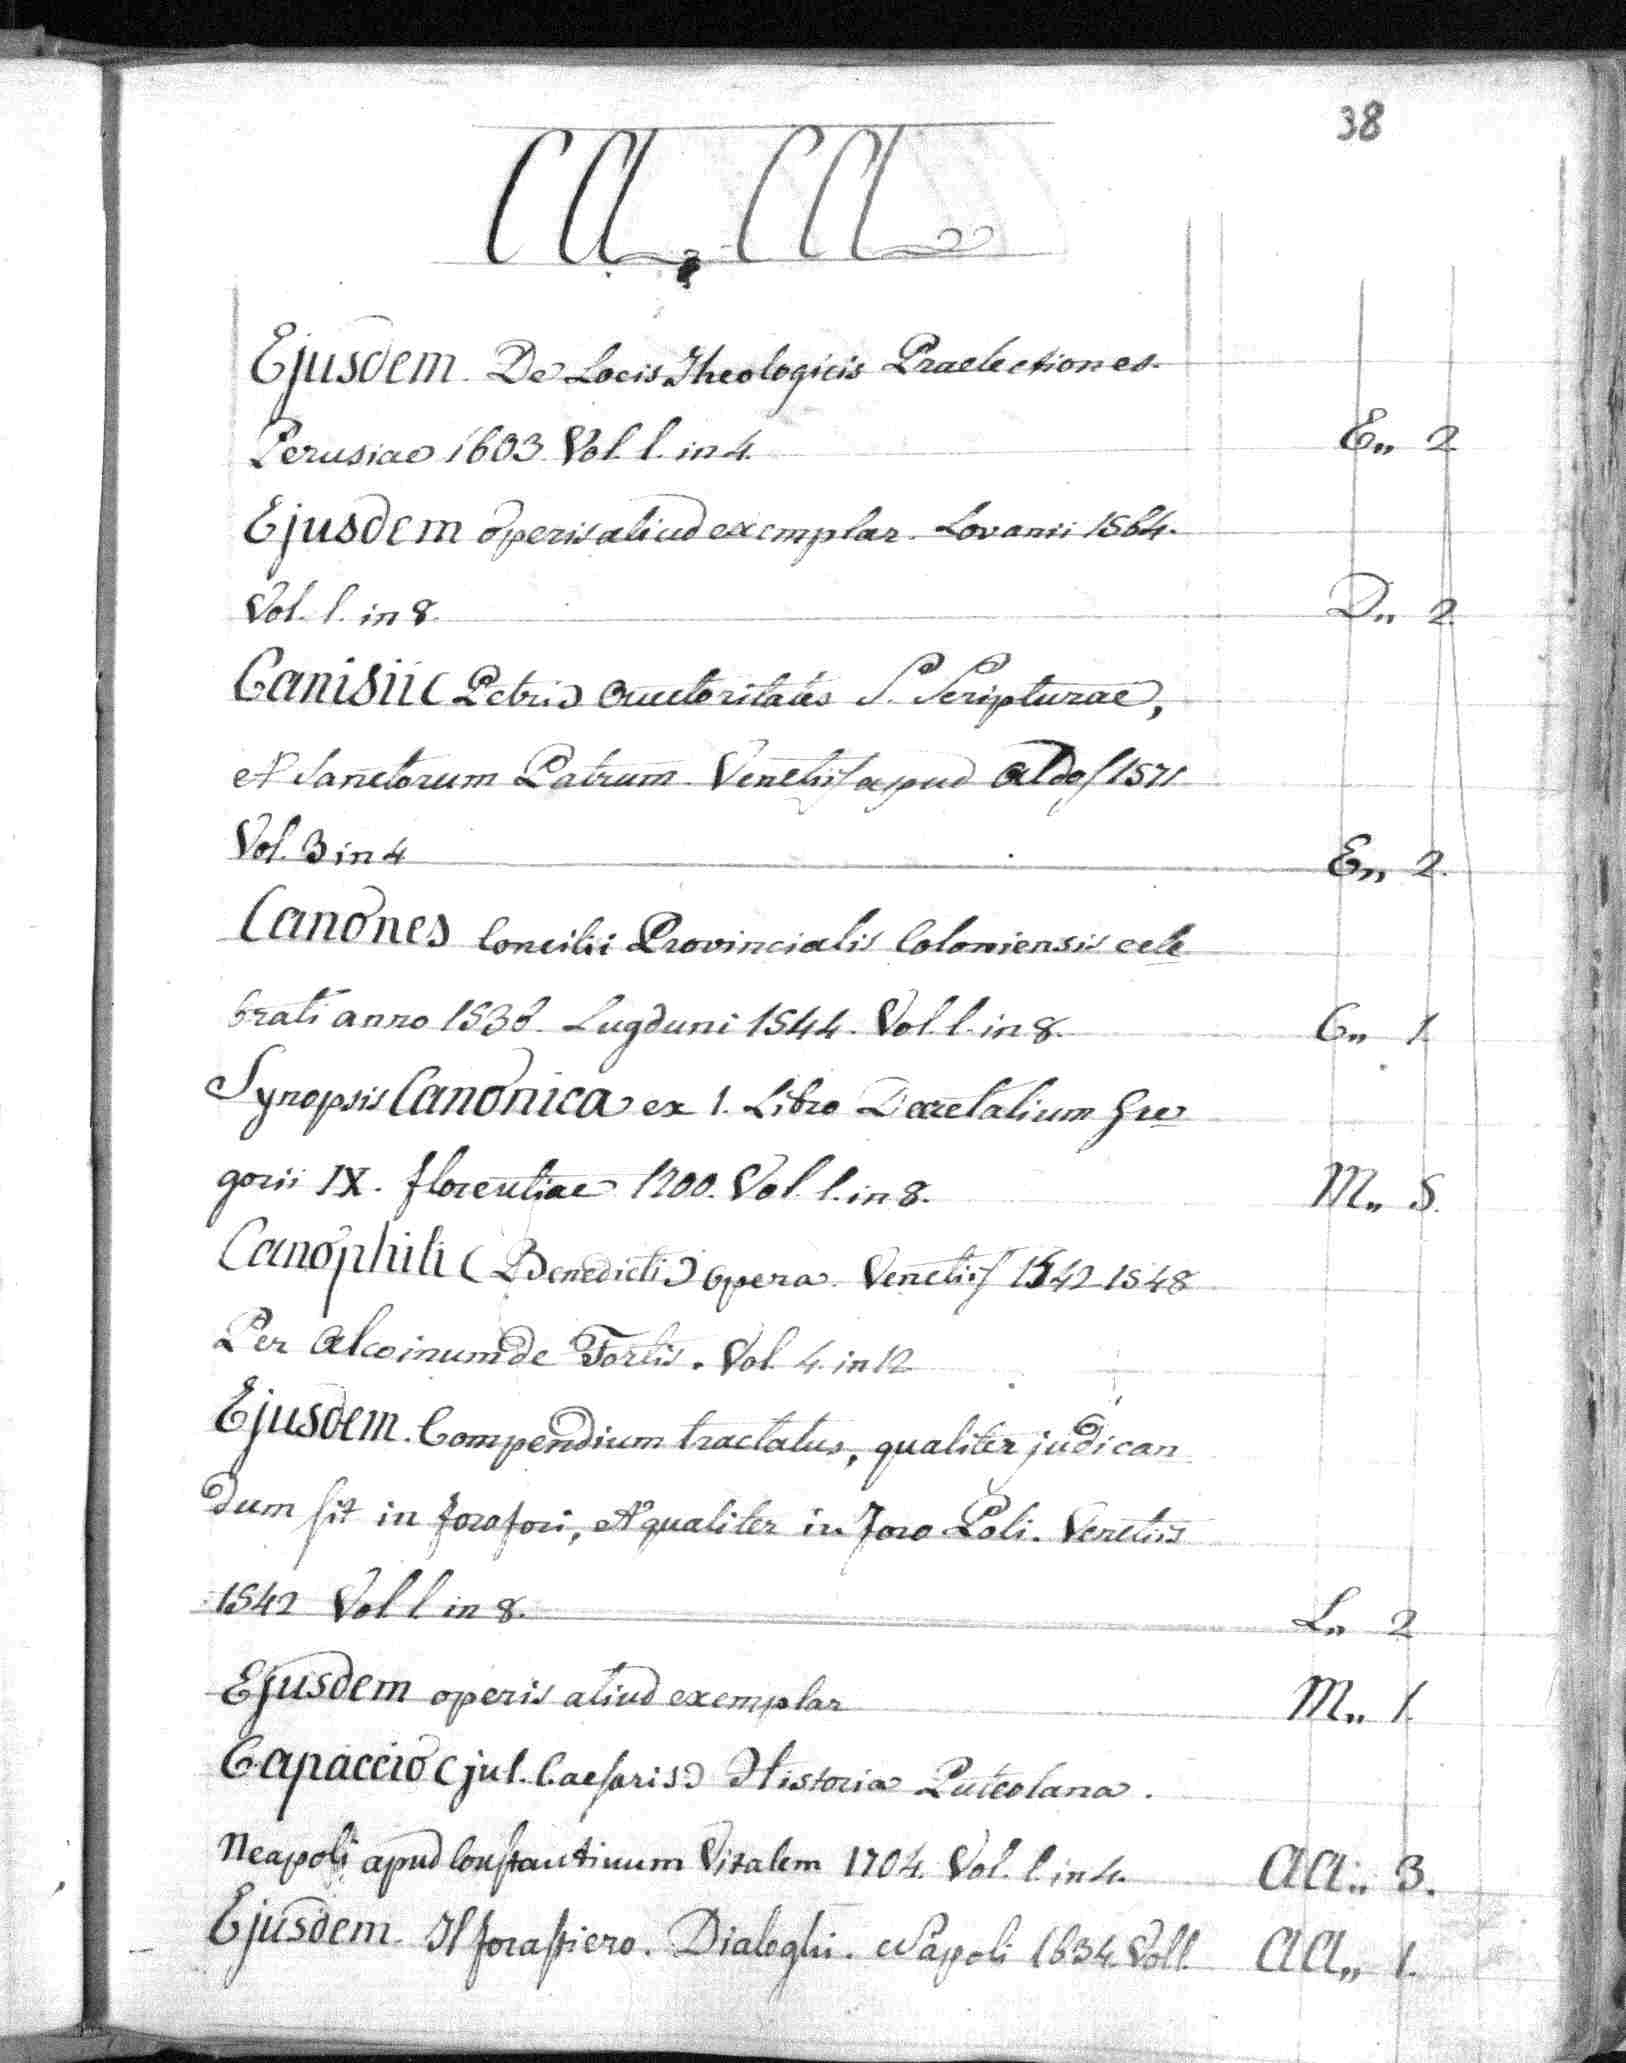 38
CA. CA
Ejusdem. De Locis Theologicis Praelectiones.
Perusiae 1603. Vol. 1. in 4. E,, 2
Ejusdem operis aliud exemplar. Lovanii 1564.
Vol. 1. in 8. D,, 2
Canisii (Petri) Auctoritates S. Scripturae,
et Sanctorum Patrum. Venetiis apud Aldos 1571
Vol. 3 in 4 E,, 2.
Canones Concilii Provincialis Coloniensis cele
brati anno 1536. Lugduni 1544. Vol. 1. in 8. C,, 1.
Synopsis Canonica ex 1. Libro Decretalium Gre
gorii IX. Florentiae 1700. Vol. 1. in 8. M,, 5.
Canophili (Benedicti) opera. Venetiis 1542 1548
Per Alcoinum de Fortis. Vol. 4. in 12
Ejusdem. Compendium tractatus, qualiter judican
dum sit in foro fori, et qualiter in foro Poli. Venetiis
1542 Vol 1 in 8. L,, 2
Ejusdem operis aliud exemplar M,, 1.
Capaccio (Jul. Caesaris) Historia Puteolana.
Neapoli apud Constantinum Vitalem 1704. Vol. 1. in 4. AA,, 3.
Ejusdem. Il forastiero. Dialoghi. Napoli 1634. Vol 1. AA,, 1.